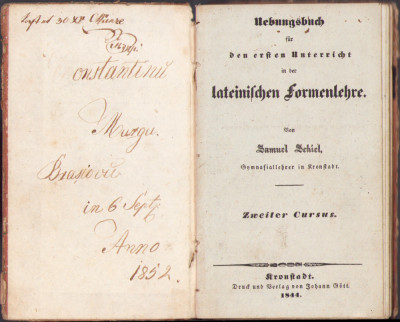 onstantinu
Murgu.
Brasiovu
in 6 Sept.
Anno
1852.
Uebungsbuch
für
den erſten Unterricht
in der
lateiniſchen Formenlehre.
Von
Samuel Schiel,
Gymnaſiallehrer in Kronſtadt.
Zweiter Cursus.
Kronſtadt.
Druck und Verlag von Johann Gött.
1844.